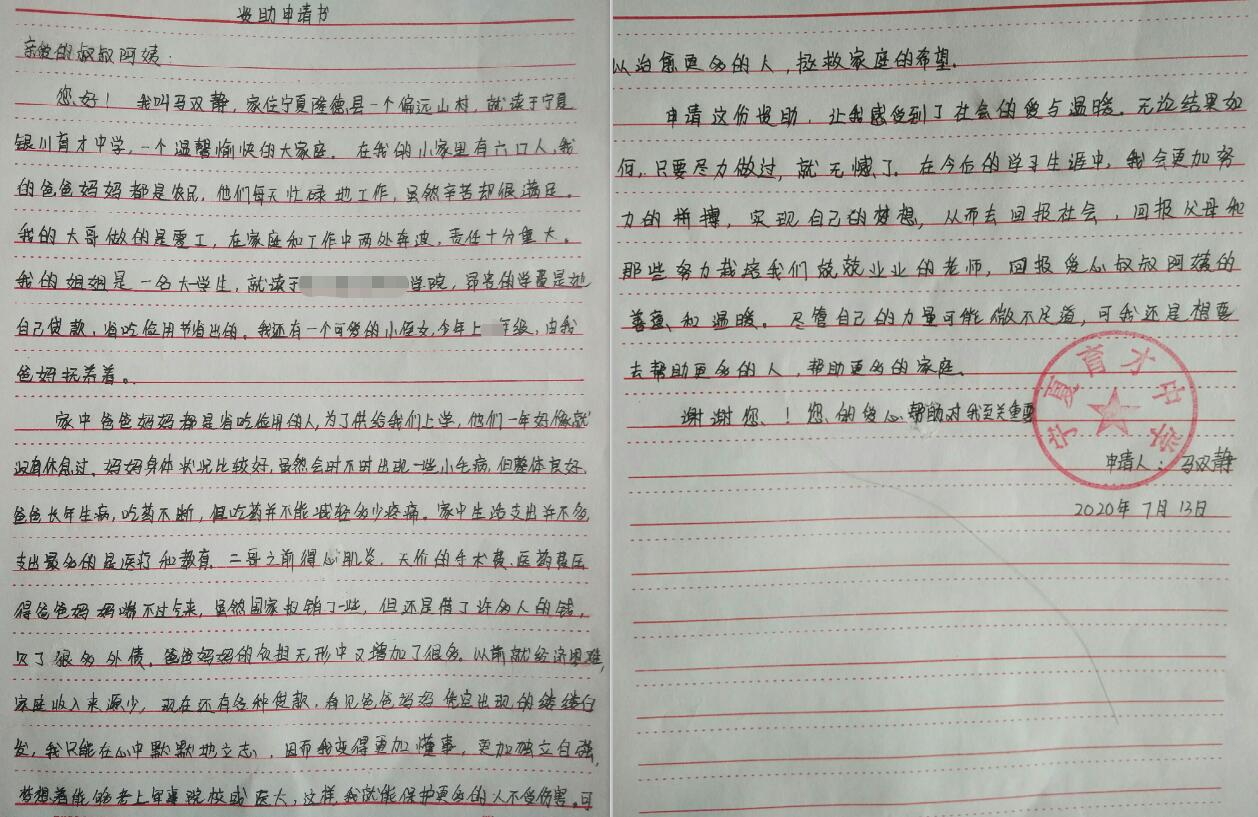 资助申请书
亲爱的叔叔阿姨：
您好！我叫马双静，家住宁夏隆德县一个偏远山村，就读于宁夏
银川育才中学，一个温馨愉快的大家庭。在我的小家里有六口人，我
的爸爸妈妈都是农民，他们每天忙碌地工作，虽然辛苦却很满足。
我的大哥做的是零工，在家庭和工作中两处奔波，责任十分重大。
我的姐姐是一名大学生，就读于学院，昂贵的学费是她
自己贷款，省吃俭用节省出的。我还有一个可爱的小侄女，今年上年级，由我
爸妈抚养着。
家中爸爸妈妈都是省吃俭用的人，为了供给我们上学，他们一年好像就
没有休息过。妈妈身体状况比较好，虽然会时不时出现一些小毛病，但整体良好，
爸爸长年生病，吃药不断，但吃药并不能减轻多少疼痛。家中生活支出并不多，
支出最多的是医疗和教育。二哥之前得心肌炎，天价的手术费、医药费压
得爸爸妈妈喘不过气来，虽然国家报销了一些，但还是借了许多人的钱，
欠了很多外债。爸爸妈妈的负担无形中又增加了很多。以前就经济困难，
家庭收入来源少，现在还有各种贷款，看见爸爸妈妈凭空出现的缕缕白
发，我只能在心中默默地立志，因而我变得更加懂事，更加独立自强，
梦想着能够考上军事院校或医大，这样，我就能保护更多的人不受伤害。可
以治愈更多的人，拯救家庭的希望。
申请这份资助，让我感受到了社会的爱与温暖。无论结果如
何，只要尽力做过，就无憾了。在今后的学习生涯中，我会更加努
力的拼搏，实现自己的梦想，从而去回报社会，回报父母和
那些努力栽培我们兢兢业业的老师，回报爱心叔叔阿姨的
善意和温暖。尽管自己的力量可能微不足道，可我还是想要
去帮助更多的人，帮助更多的家庭。
谢谢您！您的爱心帮助对我至关重要
宁夏育才中学
申请人：马双静
2020年7月13日